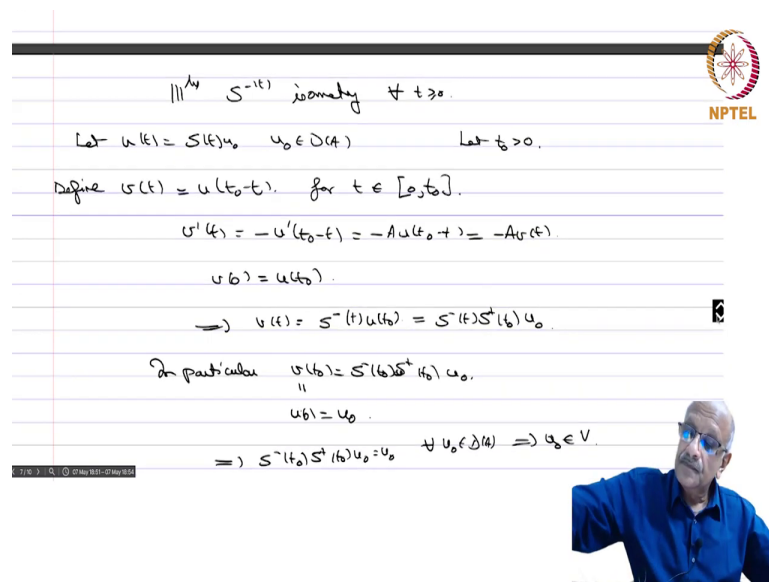 NPTEL
|||ly S⁻(t) isometry ∀ t ≥ 0.
Let u(t) = S(t)u₀ u₀ ∈ D(A) Let t₀ > 0.
Define v(t) = u(t₀-t). for t ∈ [0,t₀].
v'(t) = -u'(t₀-t) = -Au(t₀-t) = -Av(t).
v(0) = u(t₀).
⇒ v(t) = S⁻(t)u(t₀) = S⁻(t)S⁺(t₀)u₀
In particular v(t₀) = S⁻(t₀)S⁺(t₀)u₀.
||
u(0) = u₀.
⇒ S⁻(t₀)S⁺(t₀)u₀ = u₀ ∀ u₀ ∈ D(A) ⇒ u₀ ∈ V.
7/10 07 May 18:51–07 May 18:54